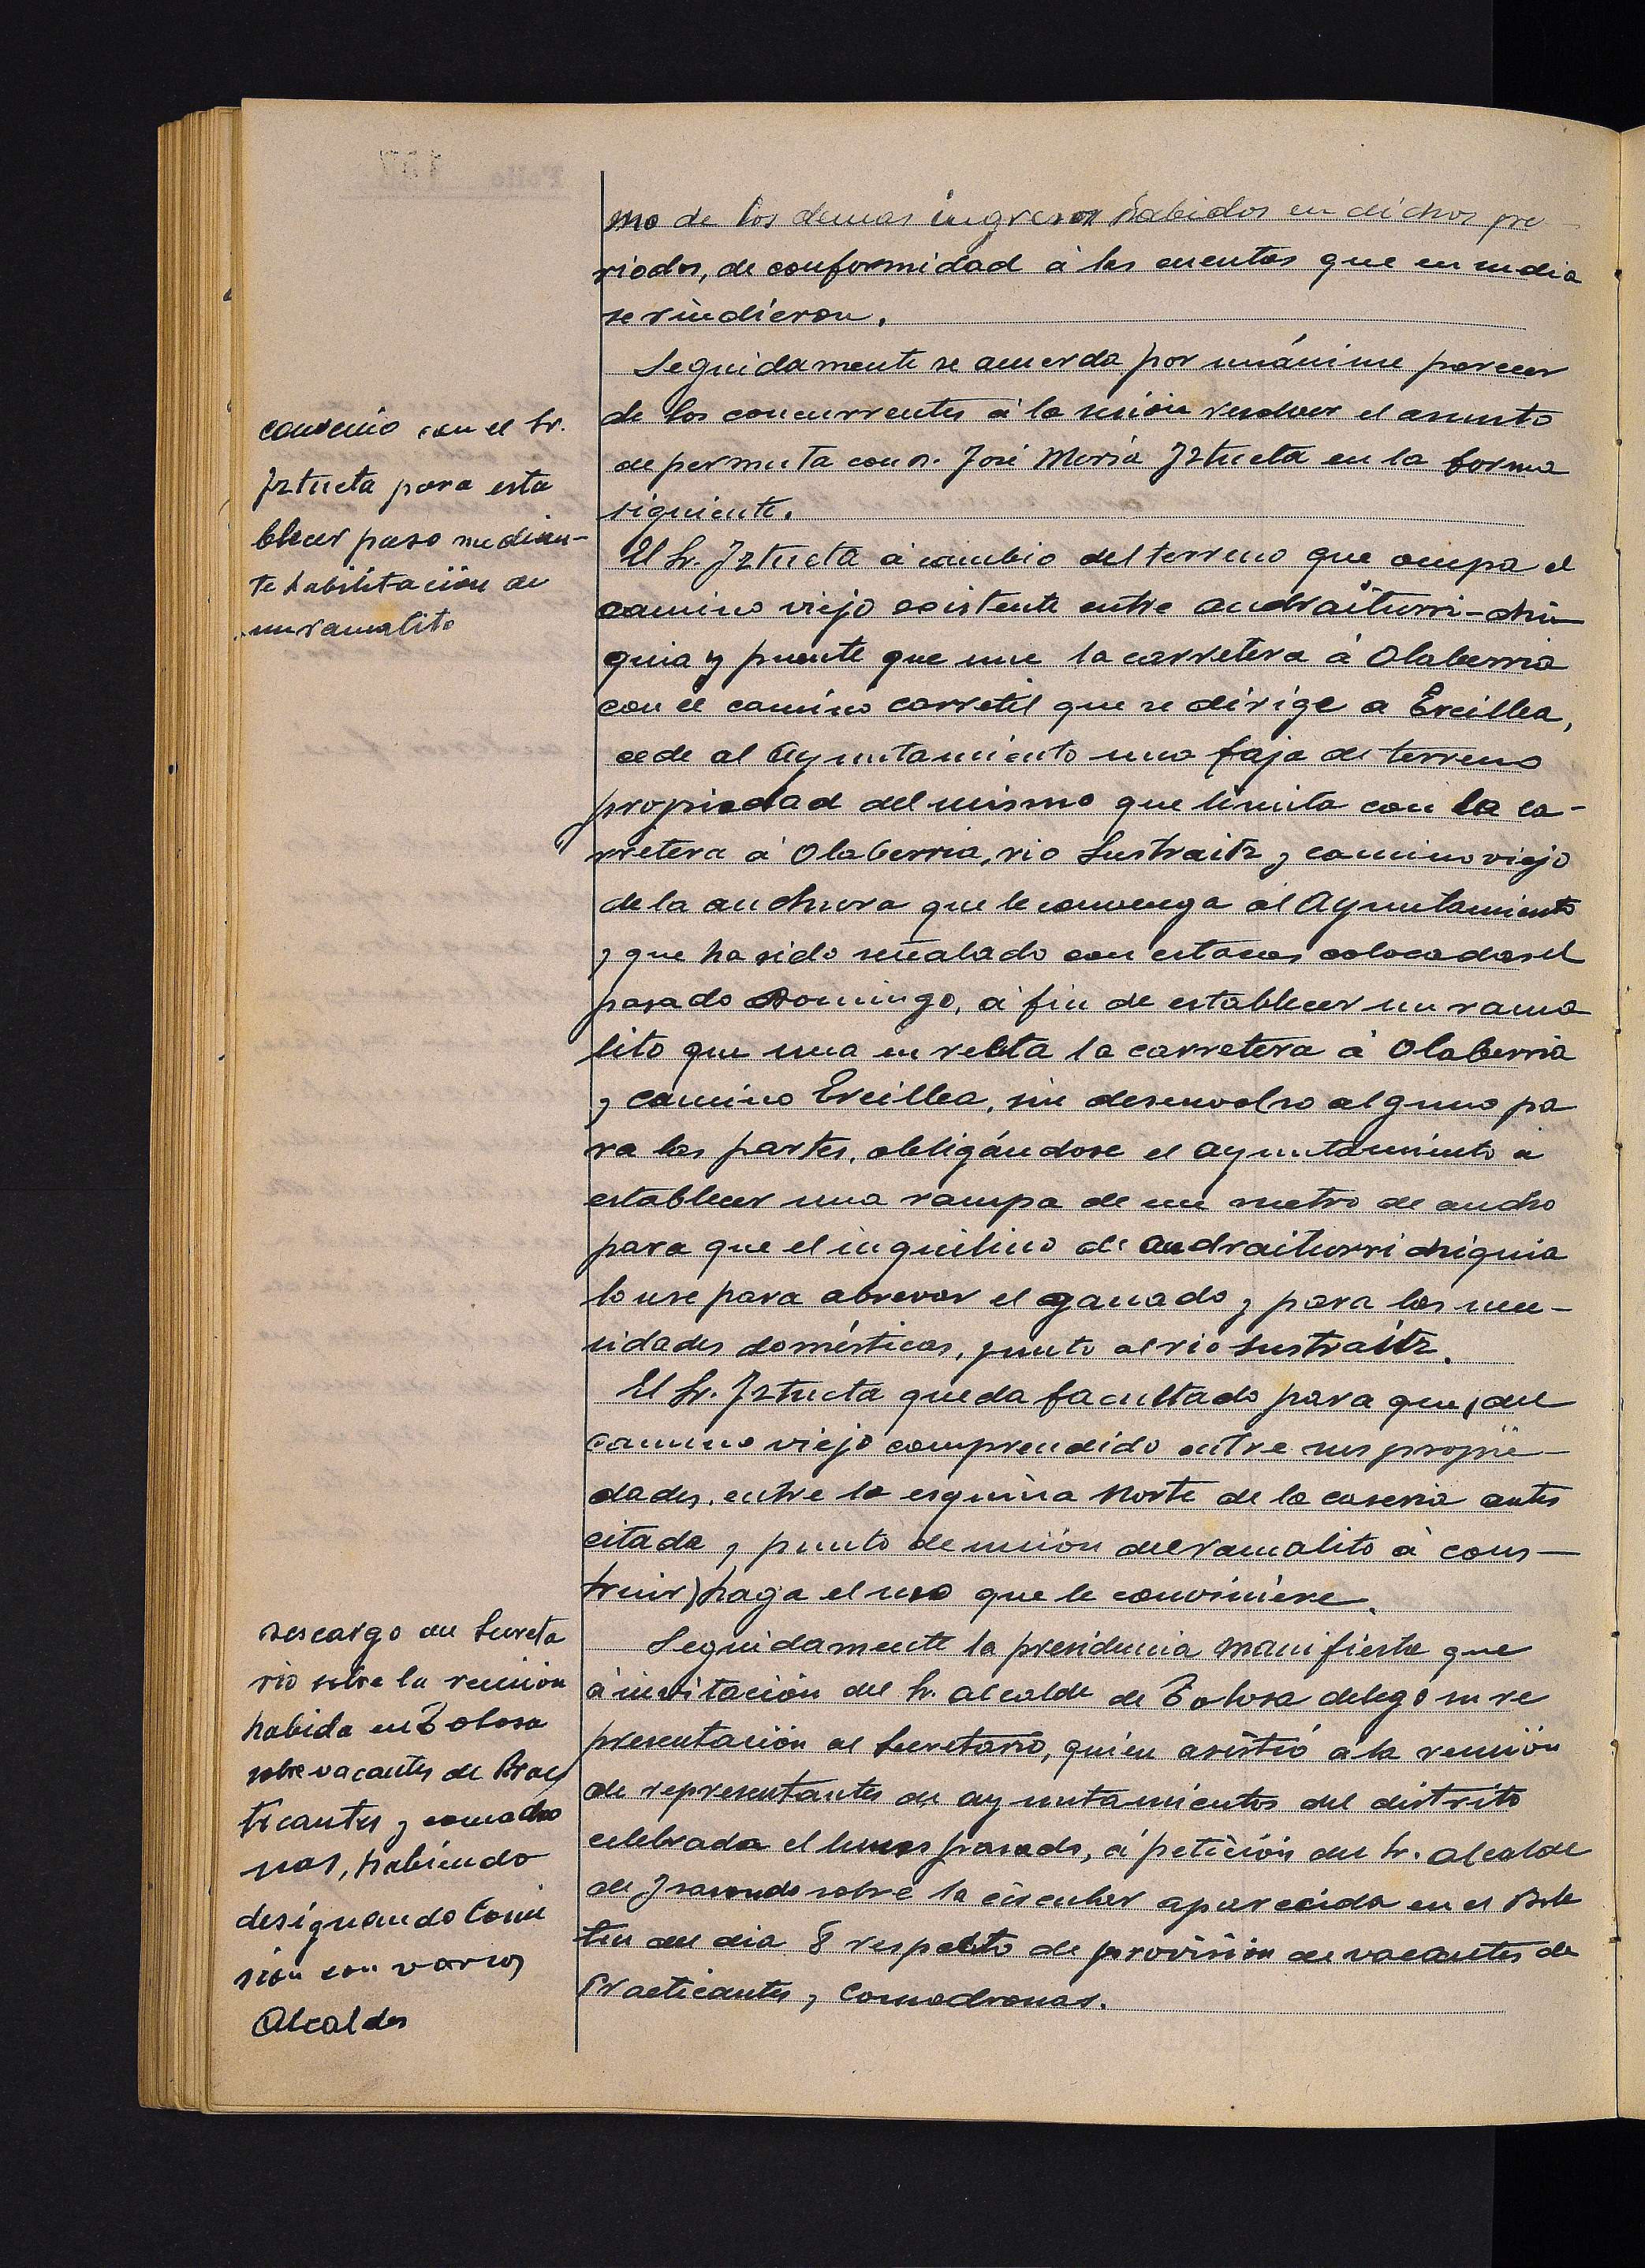 mo de los demas ingresos habidos en dichos pe-
riodos, de conformidad á las cuentas que en su dia
se rindieron.
Seguidamente se acuerda por unánime parecer
de los concurrentes á la sesión resolver el asunto
de permuta con D. José Maria Iztueta en la forma
siguiente.
convenio con el Sr.
Iztueta para esta
blecer paso median-
te habilitación de
un ramalito
El Sr. Iztueta á cambio del terreno que ocupa el
camino viejo existente entre Andraiturri-chi-
quia y puente que une la carretera á Olaberria
con el camino carretil que se dirige a Ercillea,
cede al Ayuntamiento una faja de terreno
propiedad del mismo que limita con la ca-
rretera á Olaberria, rio Sustraitz y camino viejo
de la anchura que le convenga al Ayuntamiento
y que ha sido señalado con estacas colocadas el
pasado Domingo, á fin de establecer un rama
lito que una en recta la carretera á Olaberria
y camino Ercillea, sin desenvolso alguno pa
ra las partes, obligándose el Ayuntamiento á
establecer una rampa de un metro de ancho
para que el inquilino de Andraiturri chiquia
lo use para abrevar el ganado y para las nece-
sidades domésticas, junto al rio Sustraitz.
El Sr. Iztueta queda facultado para que, del
camino viejo comprendido entre sus propie-
dades, entre la esquina Norte de la caseria antes
citada y punto de unión del ramalito á cons-
truir) haga el uso que le conviniere.
Descargo del Secreta
rio sobre la reunion
habida en Tolosa
sobre vacantes de Prac
ticantes y comadro
nas, habiendo
designando Comi
sión con varios
Alcaldes
Seguidamente la presidencia manifiesta que
á invitación del Sr. Alcalde de Tolosa delegó su re
presentación al Secretario, quien asistió á la reunión
de representantes de ayuntamientos del distrito
celebrada el lunes pasado, á petición del Sr. Alcalde
de Isasondo sobre la circular aparecida en el Bole
tin del dia 8 respecto de provisión de vacantes de
Practicantes y Comadronas.